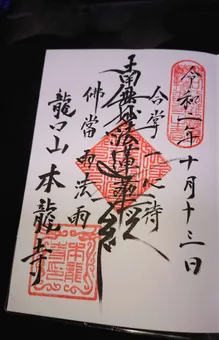 令和一年十月十三日
合掌一心待
南無妙法蓮華経
佛當雨法雨
龍口山 本龍寺